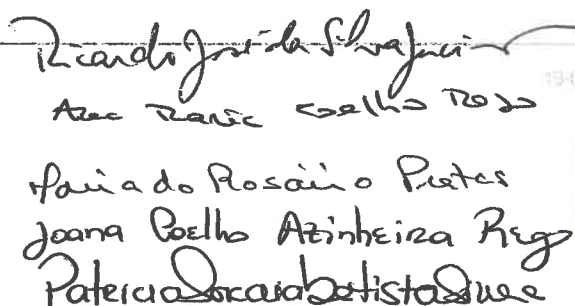 Ricardo José da Silva
Ana Maria Coelho Rego
Maria do Rosário Pratas
Joana Coelho Azinheira Rego
Patrícia Batista